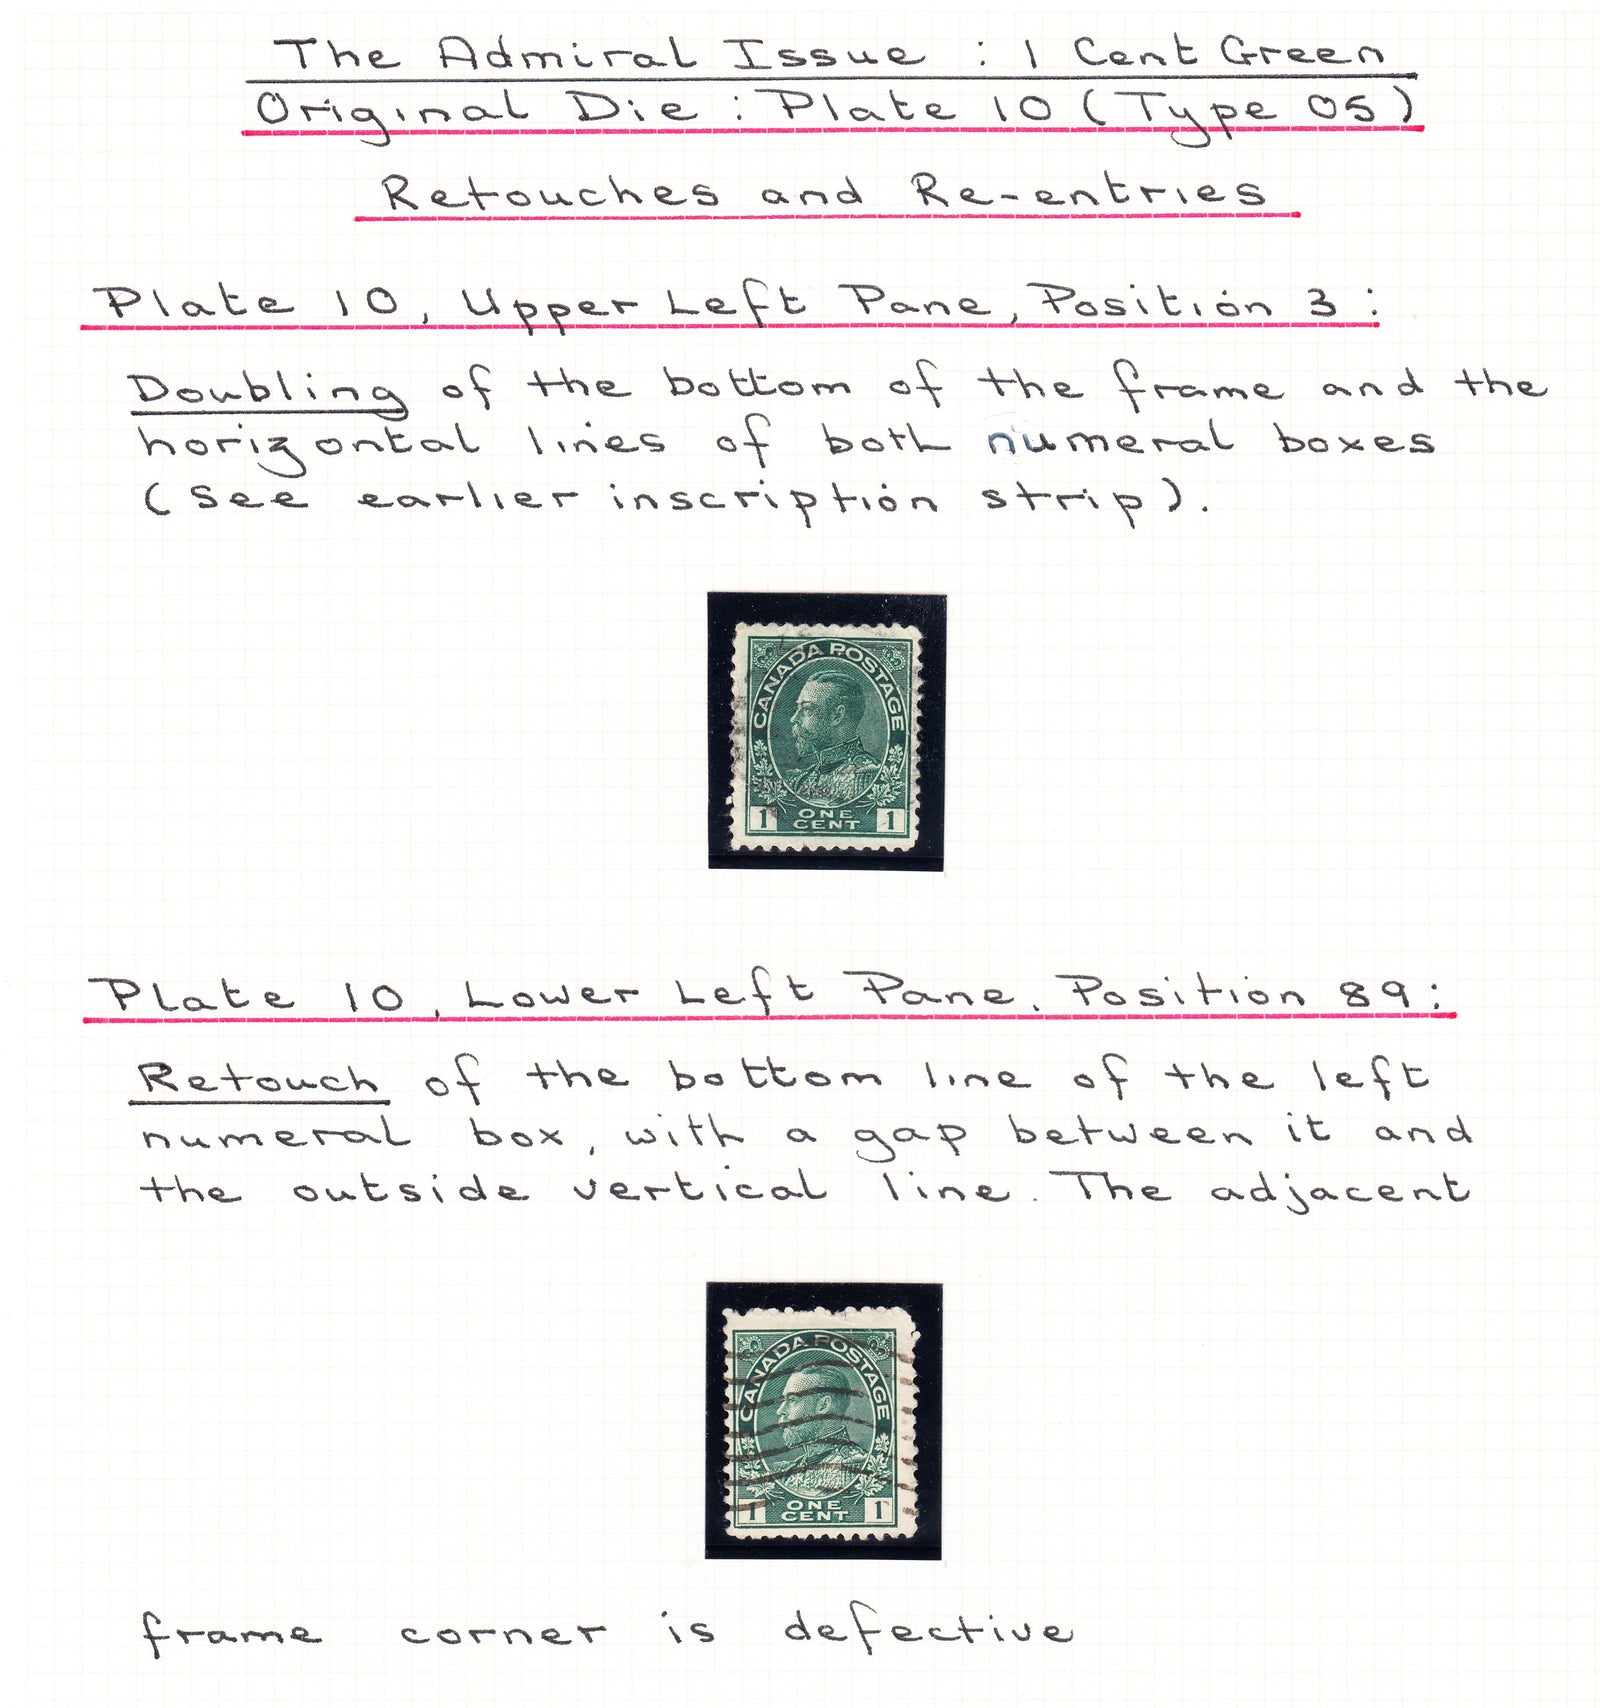 The Admiral Issue : 1 Cent Green
Original Die : Plate 10 (Type 05)
Retouches and Re-entries
Plate 10, Upper Left Pane, Position 3 :
Doubling of the bottom of the frame and the
horizontal lines of both numeral boxes
(See earlier inscription strip).
CANADA POSTAGE
1 ONE 1
CENT
Plate 10, Lower Left Pane, Position 89 :
Retouch of the bottom line of the left
numeral box, with a gap between it and
the outside vertical line. The adjacent
CANADA POSTAGE
1 ONE 1
CENT
frame corner is defective